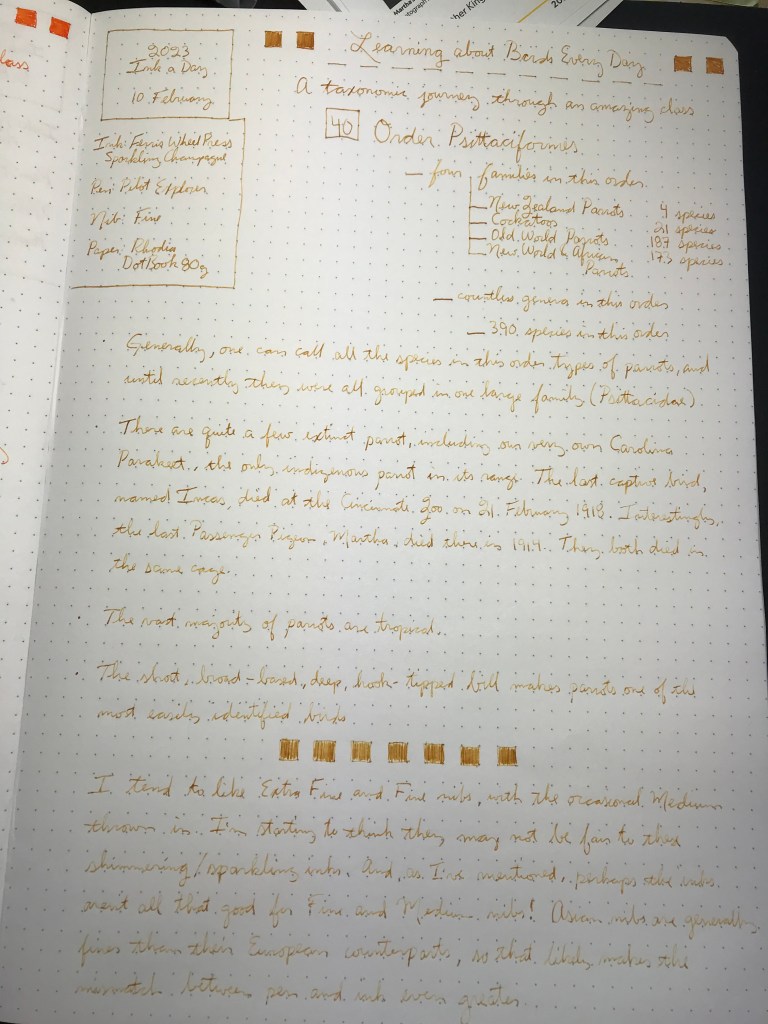 lass
Martha
tographi
ther King
20
2023
Ink a Day
10 February
Ink: Ferris Wheel Press
Sparkling Champagne
Pen: Pilot Explorer
Nib: Fine
Paper: Rhodia
DotBook 80g
Learning about Birds Every Day
A taxonomic journey through an amazing class
40 Order Psittaciformes
– four families in this order
New Zealand Parrots 4 species
Cockatoos 21 species
Old World Parrots 187 species
New World & African Parrots 173 species
– countless genera in this order
– 390 species in this order
Generally, one can call all the species in this order types of parrots, and
until recently they were all grouped in one large family (Psittacidae).
There are quite a few extinct parrot, including our very own Carolina
Parakeet, the only indigenous parrot in its range. The last captive bird,
named Incas, died at the Cincinnati Zoo on 21 February 1918. Interestingly,
the last Passenger Pigeon, Martha, died there in 1914. They both died in
the same cage.
The vast majority of parrots are tropical.
The short, broad-based, deep, hook-tipped bill makes parrots one of the
most easily identified birds.
I tend to like Extra Fine and Fine nibs, with the occasional Medium
thrown in. I'm starting to think they may not be fair to these
shimmering/sparkling inks. And, as I've mentioned, perhaps the inks
aren't all that good for Fine and Medium nibs! Asian nibs are generally
finer than their European counterparts, so that likely makes the
mismatch between pen and ink even greater.